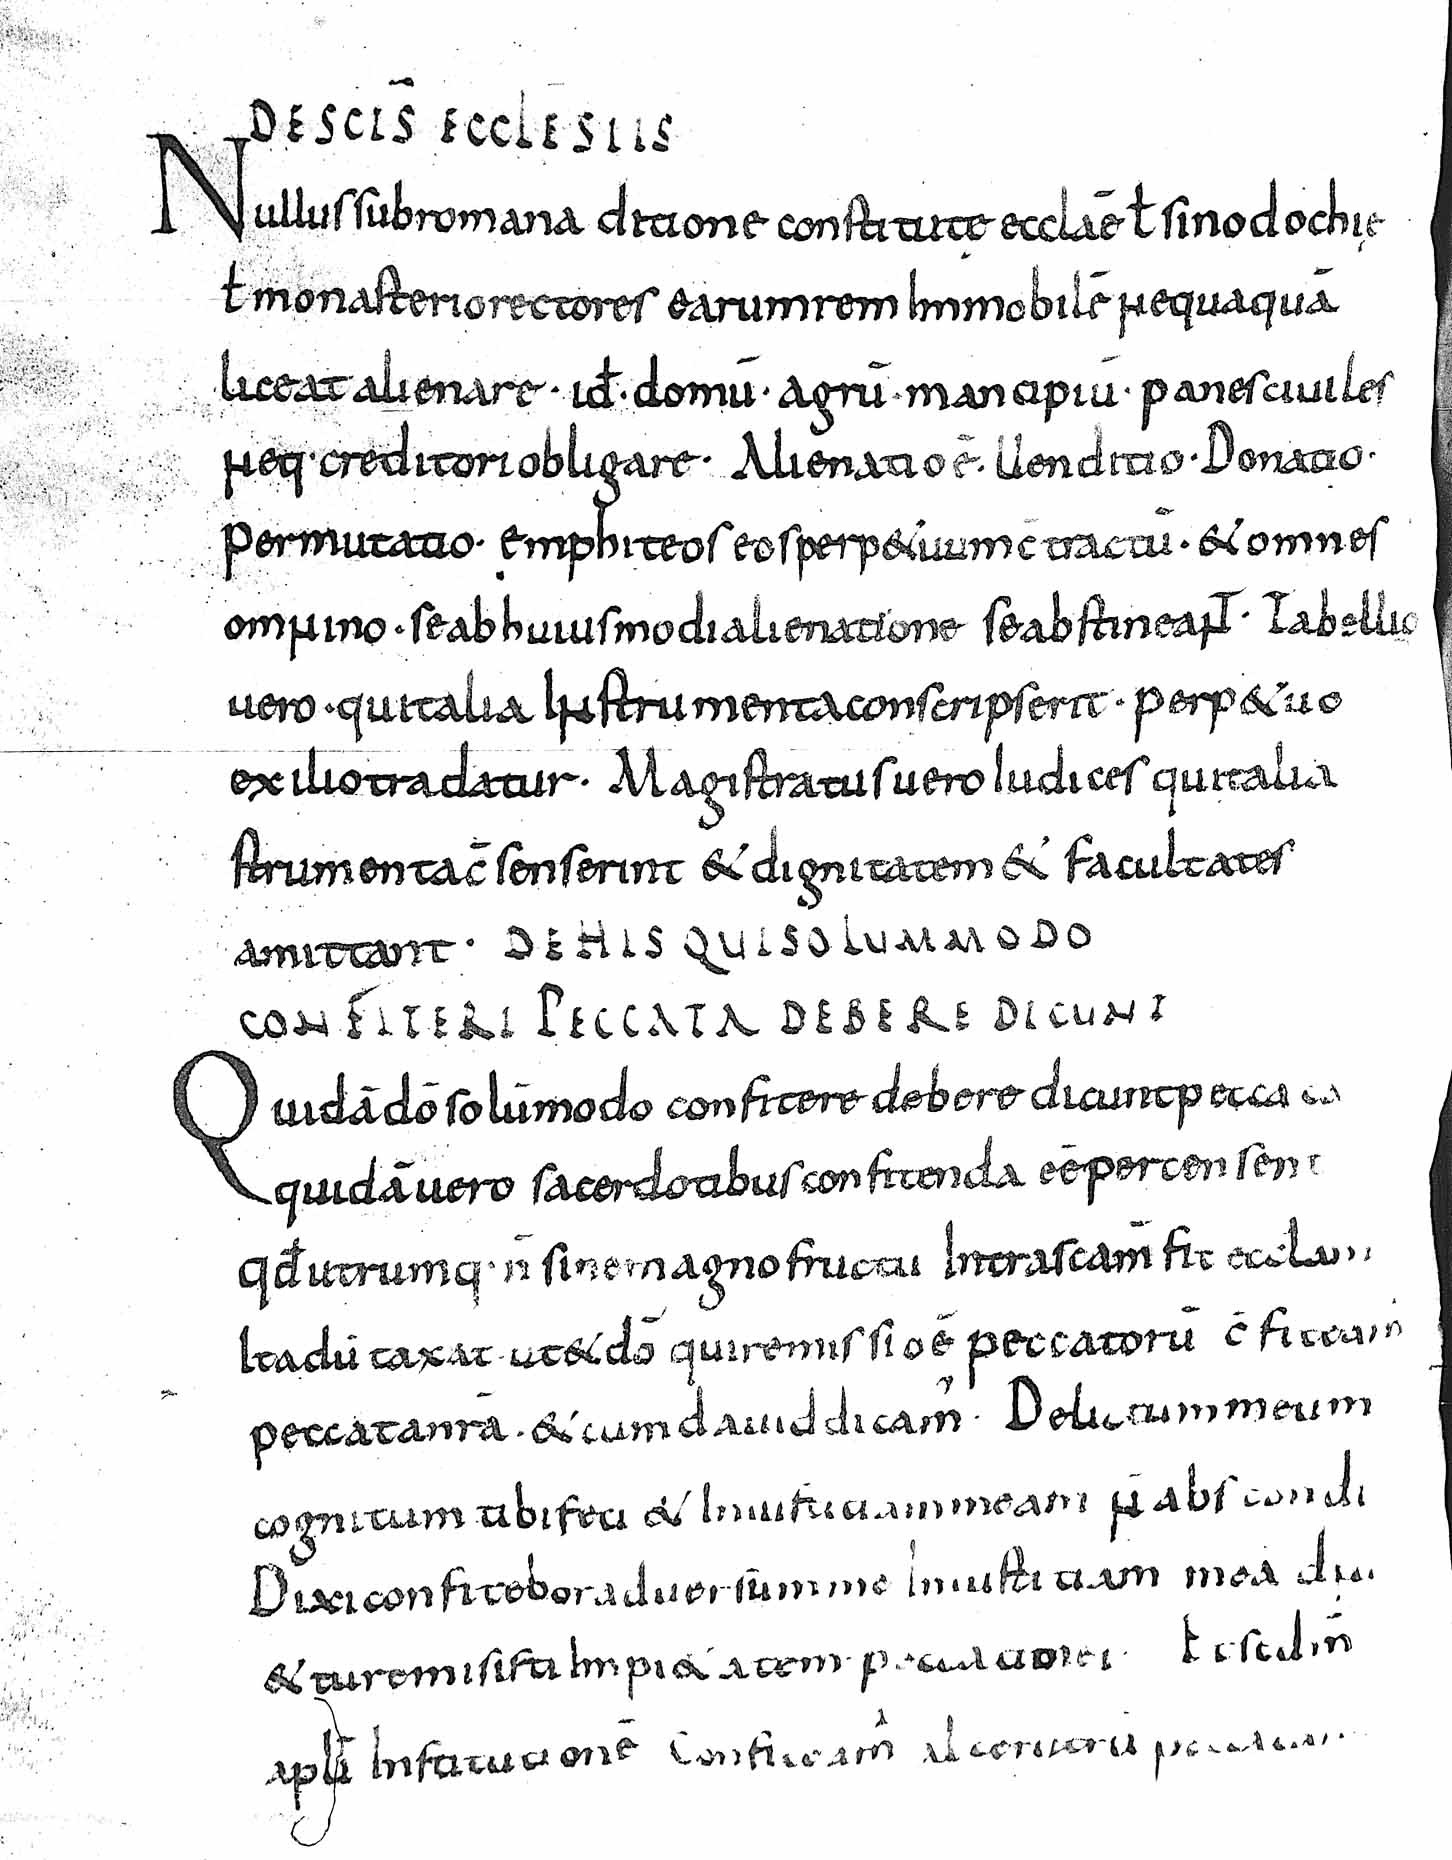 DESCIS̄ ECCLESIIS
Nullus sub romana ditione constitutę ecclaē ł sinodochię
ł monasterio rectores earum rem Immobilē nequaquā
liceat alienare · id̄ · domū · agrū · mancipiū · panes ciuiles
neq· creditori obligare · Alienatio ē. Uenditio · Donatio ·
Permutatio · Emphiteoseos perp&uum c̄tractū · & omnes
omnino · se ab huiusmodi alienatione se abstineant · Tabellio
uero · qui talia Instrumenta conscripserit · perp&uo
exilio tradatur · Magistratus uero Iudices qui talia
strumenta c̄senserint & dignitatem & facultates
amittant · DE HIS QUI SOLUMMODO
CONFITERI PECCATA DEBERE DICUNT
Quidā dō solūmodo confitere debere dicunt peccata
quidā uero sacerdotibus confitenda eē percensent
qd̄ utrumq· n̄ sine magno fructu Intra scam̄ fit ecclam
Ita dū taxat ut & dō qui remissio ē peccatorū c̄fiteam̄
peccata nrā · & cum dauid dicam̄ · Delictum meum
cognitum tibi feci & Iniustitiam meam n̄ abscondi
Dixi confitebor aduersū me Iniustitiam meā dn̄o
& tu remisisti Impi&atem peccati mei · & scdm̄
apłi Institutionē Confiteam̄ alterutrū peccata